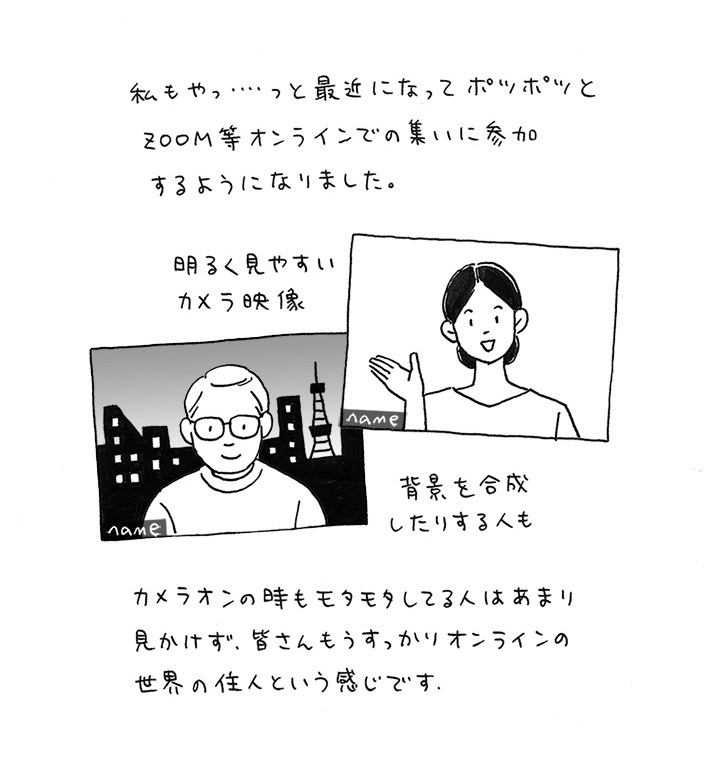 私もやっ‥‥っと最近になってポツポツと
ZOOM等オンラインでの集いに参加
するようになりました。
明るく見やすい
カメラ映像
name
name
背景を合成
したりする人も
カメラオンの時もモタモタしてる人はあまり
見かけず、皆さんもうすっかりオンラインの
世界の住人という感じです.